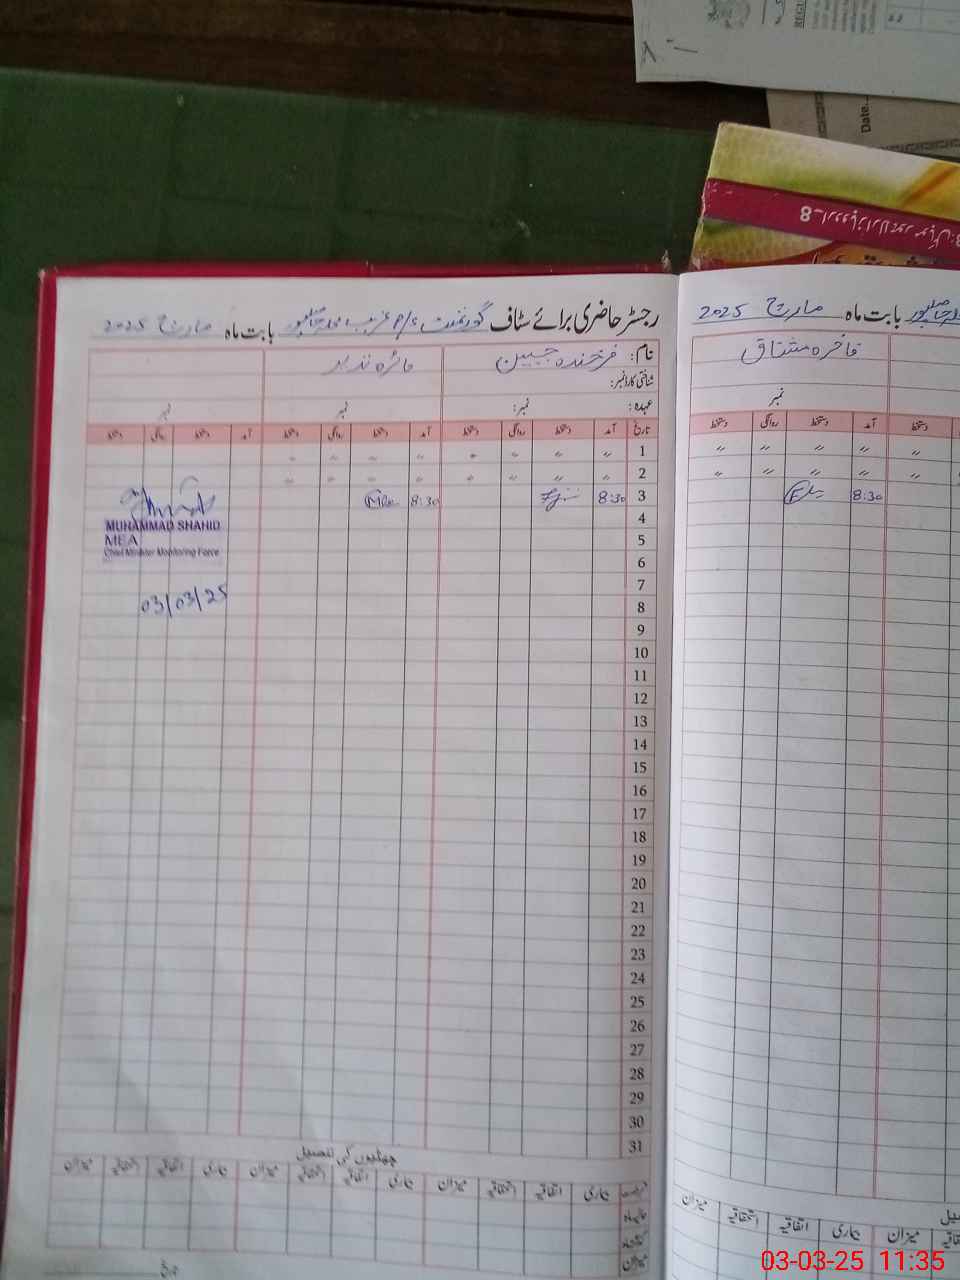 Date...
رجسٹر حاضری برائے سٹاف گورنمنٹ P/S غریب محلہ بابت ماہ مارچ 2025
نام: فرخندہ جبین فائزہ نذیر
شناختی کارڈ نمبر:
عہدہ: نمبر: نمبر نمبر
تاریخ آمد دستخط روانگی دستخط آمد دستخط روانگی دستخط آمد دستخط روانگی دستخط
1 〃 〃 〃 〃 〃 〃 〃 〃
2 〃 〃 〃 〃 〃 〃 〃 〃
3 8:30 8:30
4
5
6
7
8
9
10
11
12
13
14
15
16
17
18
19
20
21
22
23
24
25
26
27
28
29
30
31
MUHAMMAD SHAHID
MEA
Chief Minister Monitoring Force
03/03/25
چھٹیوں کی تفصیل
بیماری اتفاقیہ استحقاقیہ میزان بیماری اتفاقیہ استحقاقیہ میزان بیماری اتفاقیہ استحقاقیہ میزان
میزان
بابت ماہ مارچ 2025
فاخرہ مشتاق
نمبر
دستخط آمد دستخط روانگی دستخط
〃 〃 〃 〃 〃
〃 〃 〃 〃 〃
8:30
میزان بیماری اتفاقیہ استحقاقیہ میزان
03-03-25 11:35